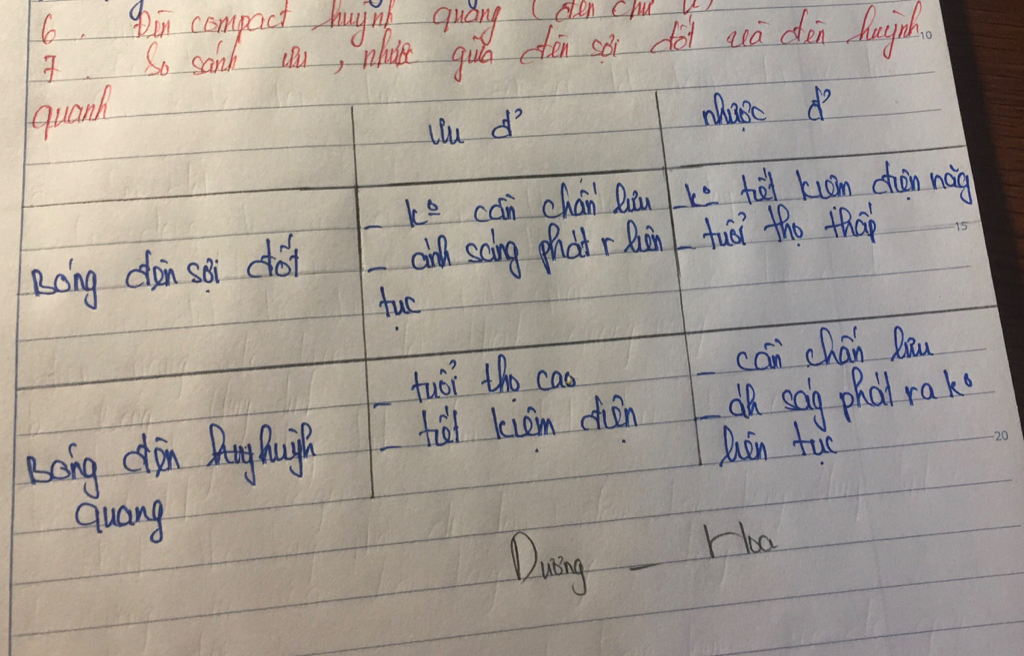 6. Đèn compact huỳnh quang (đèn chữ U)
7. So sánh ưu, nhược giữa đèn sợi đốt và đèn huỳnh
quanh
ưu đ²
nhược đ²
Bóng điện sợi đốt
- kº cần chấn lưu
- ánh sáng phát r liên
tục
- kº tiết kiệm điện năg
- tuổi thọ thấp
Bóng điện huỳnh
quang
- tuổi thọ cao
- tiết kiệm điện
- cần chấn lưu
- áh ság phát ra kº
liên tục
Dương - Hoa
10
15
20